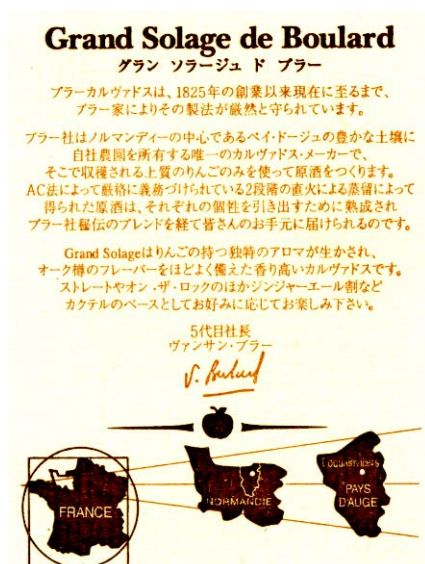 Grand Solage de Boulard
グラン ソラージュ ド ブラー
ブラーカルヴァドスは、1825年の創業以来現在に至るまで、
ブラー家によりその製法が厳然と守られています。
ブラー社はノルマンディーの中心であるペイ・ドージュの豊かな土壌に
自社農園を所有する唯一のカルヴァドス・メーカーで、
そこで収穫される上質のりんごのみを使って原酒をつくります。
AC法によって厳格に義務づけられている2段階の直火による蒸留によって
得られた原酒は、それぞれの個性を引き出すために熟成され
ブラー社秘伝のブレンドを経て皆さんのお手元に届けられるのです。
Grand Solageはりんごの持つ独特のアロマが生かされ、
オーク樽のフレーバーをほどよく備えた香り高いカルヴァドスです。
ストレートやオン・ザ・ロックのほかジンジャーエール割など
カクテルのベースとしてお好みに応じてお楽しみ下さい。
5代目社長
ヴァンサン・ブラー
V. Boulard
FRANCE
NORMANDIE
PAYS
D'AUGE